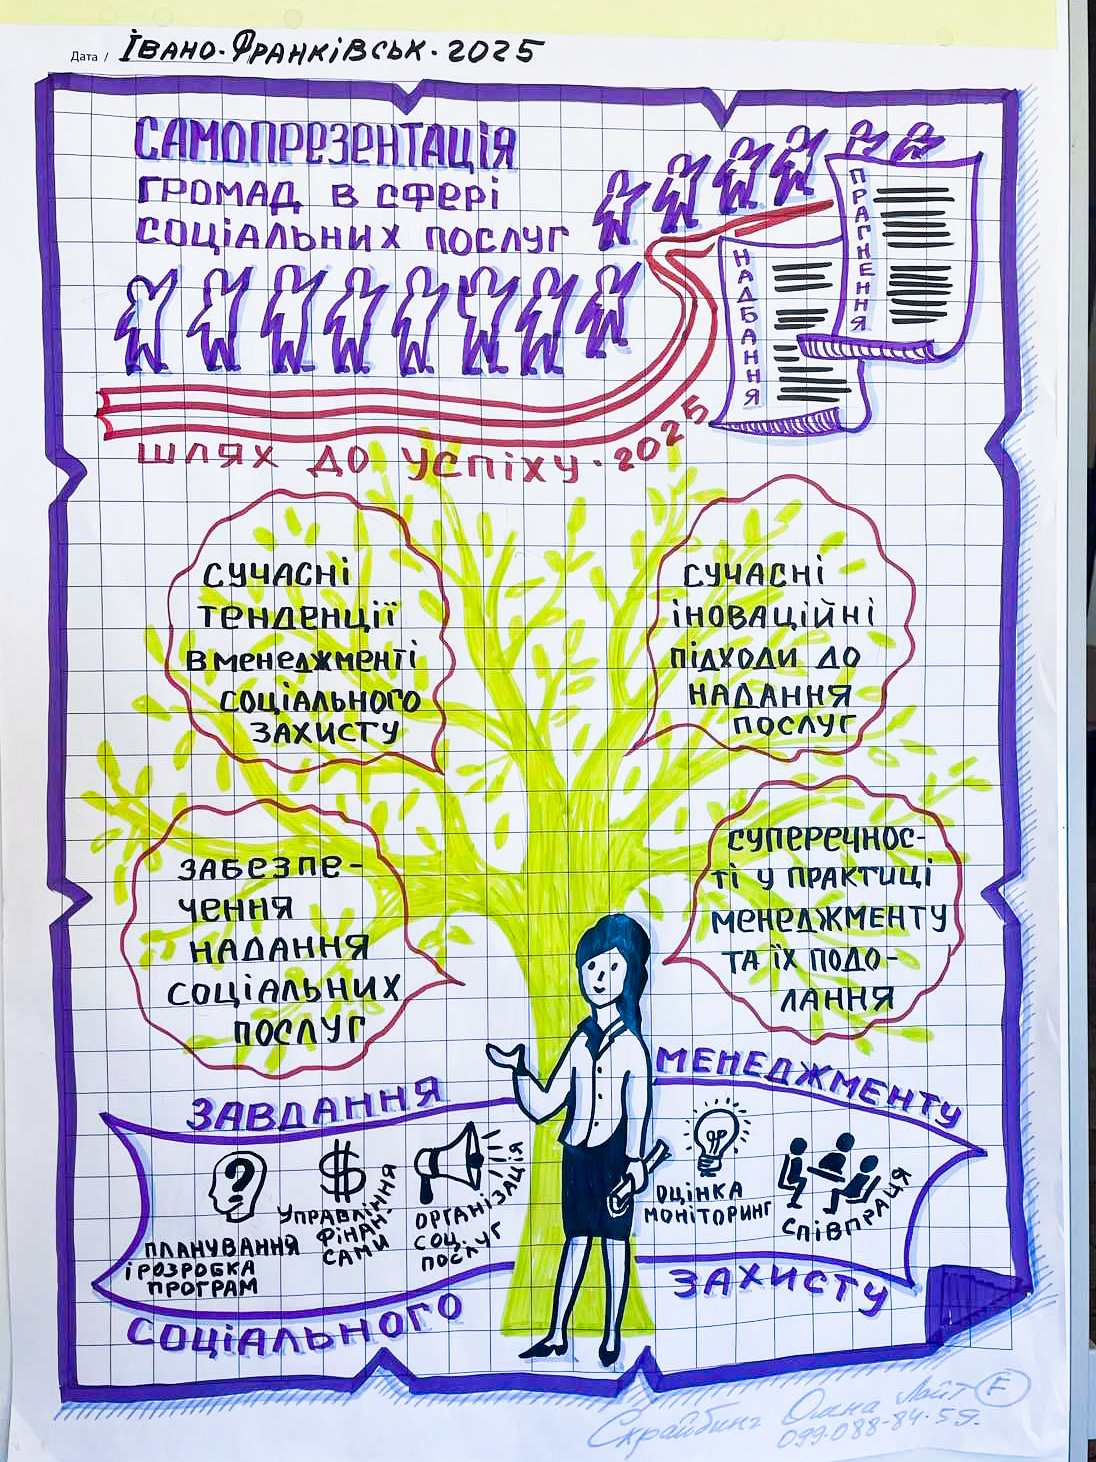 Дата / Івано-Франківськ. 2025
САМОПРЕЗЕНТАЦІЯ
ГРОМАД В СФЕРІ
СОЦІАЛЬНИХ ПОСЛУГ
ПРАГНЕННЯ
НАДБАННЯ
ШЛЯХ ДО УСПІХУ. 2025
СУЧАСНІ
ТЕНДЕНЦІЇ
В МЕНЕДЖМЕНТІ
СОЦІАЛЬНОГО
ЗАХИСТУ
СУЧАСНІ
ІНОВАЦІЙНІ
ПІДХОДИ ДО
НАДАННЯ
ПОСЛУГ
ЗАБЕЗПЕ-
ЧЕННЯ
НАДАННЯ
СОЦІАЛЬНИХ
ПОСЛУГ
СУПЕРЕЧНОС-
ТІ У ПРАКТИЦІ
МЕНЕДЖМЕНТУ
ТА ЇХ ПОДО-
ЛАННЯ
ЗАВДАННЯ
МЕНЕДЖМЕНТУ
?
ПЛАНУВАННЯ
І РОЗРОБКА
ПРОГРАМ
$
УПРАВЛІННЯ
ФІНАН-
САМИ
ОРГАНІЗАЦІЯ
СОЦ.
ПОСЛУГ
ОЦІНКА
МОНІТОРИНГ
СПІВПРАЦЯ
СОЦІАЛЬНОГО
ЗАХИСТУ
Скрайбинг Олена Лайт F
099-088-84-59.